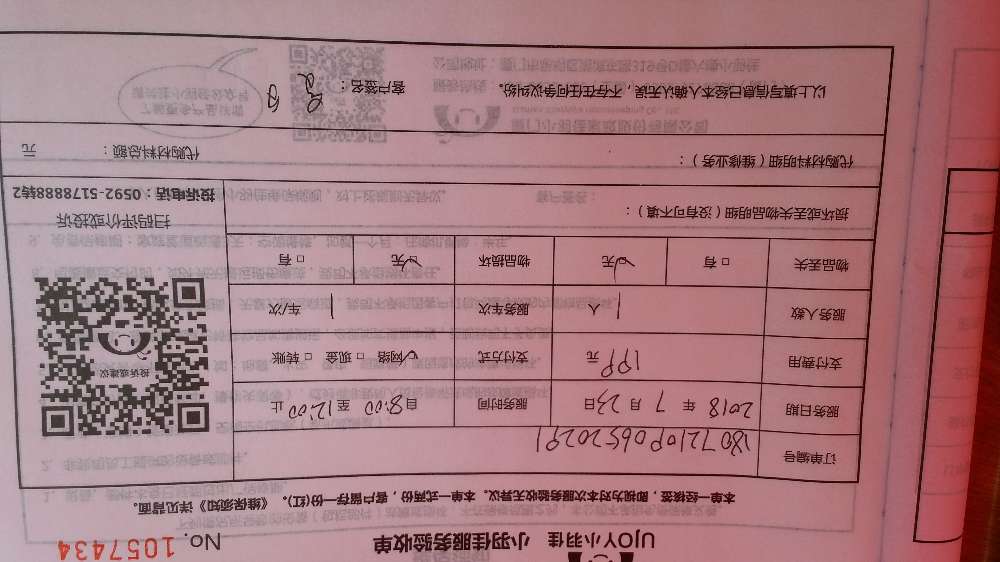 UJOY小羽佳 小羽佳服务验收单
No. 1057434
本单一经核签，即视为对本次服务验收无异议。本单一式两份，客户留存一份(红)。《维保须知》详见背面。
订单编号 1807210906520291
服务日期 2018 年 7 月 23 日 服务时间 自 8:00 至 12:00 止
支付费用 199 元 支付方式 ☑ 网络 □ 现金 □ 转账
服务人数 1 人 服务车次 1 车/次
物品丢失 □ 有 ☑ 无 物品损坏 ☑ 无 □ 有
投诉或建议
扫码评价或投诉
投诉电话：0592-5178888转2
损坏或丢失物品明细（没有可不填）：
代购材料明细（维修业务）： 代购材料总额： 元
以上填写信息已经本人确认无误，不存在任何争议纠纷。 客户签名：